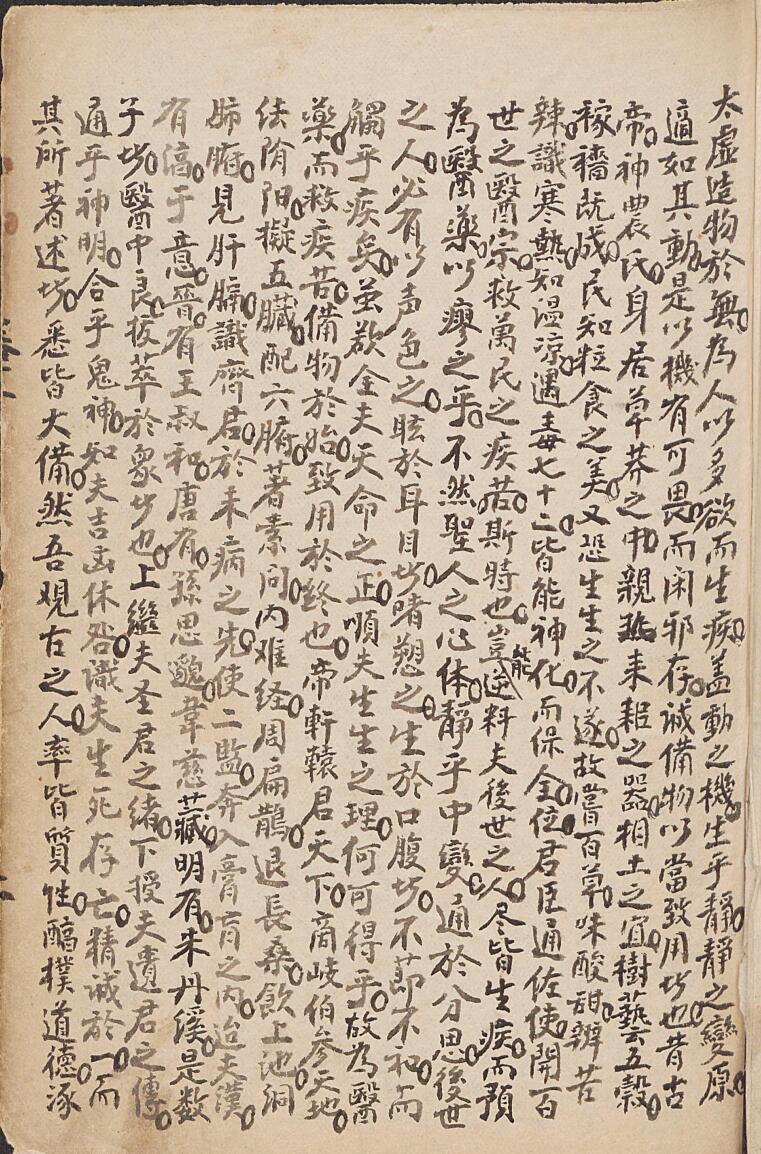 太虛造物於無為人以多欲而生疾蓋動之機生乎靜靜之變原
適如其動是以機有可畏而闲邪存诚備物以當致用者也昔古
帝神農氏身居草莽之中親耒耜之器相土之宜樹藝五穀
稼穡既成民知粒食之美又恐生生之不遂故嘗百草味酸甜辨苦
辣識寒熱知温凉遇毒七十二皆能神化而保全位君臣通佐使開百
世之醫宗救萬民之疾若斯時也豈能逆料夫後世之人尽皆生疾而預
為醫藥以瘳之乎不然聖人之心体靜乎中變通於分思後世
之人必有以声色之眩於耳目者嗜愬之生於口腹者不節不和而
觸乎疾矣茧欲全夫天命之正順夫生生之理何可得乎故為醫
藥而救疾苦備物於始致用於終也帝軒轅君天下商岐伯參天地
法陰阳擬五臟配六腑著素问内难经周扁鵲退長桑飲上池洞
肺腑見肝膈識齊君於未病之先使二監奔入膏肓之内迨夫漢
有滈于意晉有王叔和唐有孫思邈韋慈藏明有朱丹溪是数
子者醫中良拔萃於衆者也上繼夫圣君之緒下授夫遺君之傳
通乎神明合乎鬼神知夫吉凶休咎識夫生死存亡精诚於一而
其所著述者悉皆大備然吾观古之人率皆質性醕樸道德涿